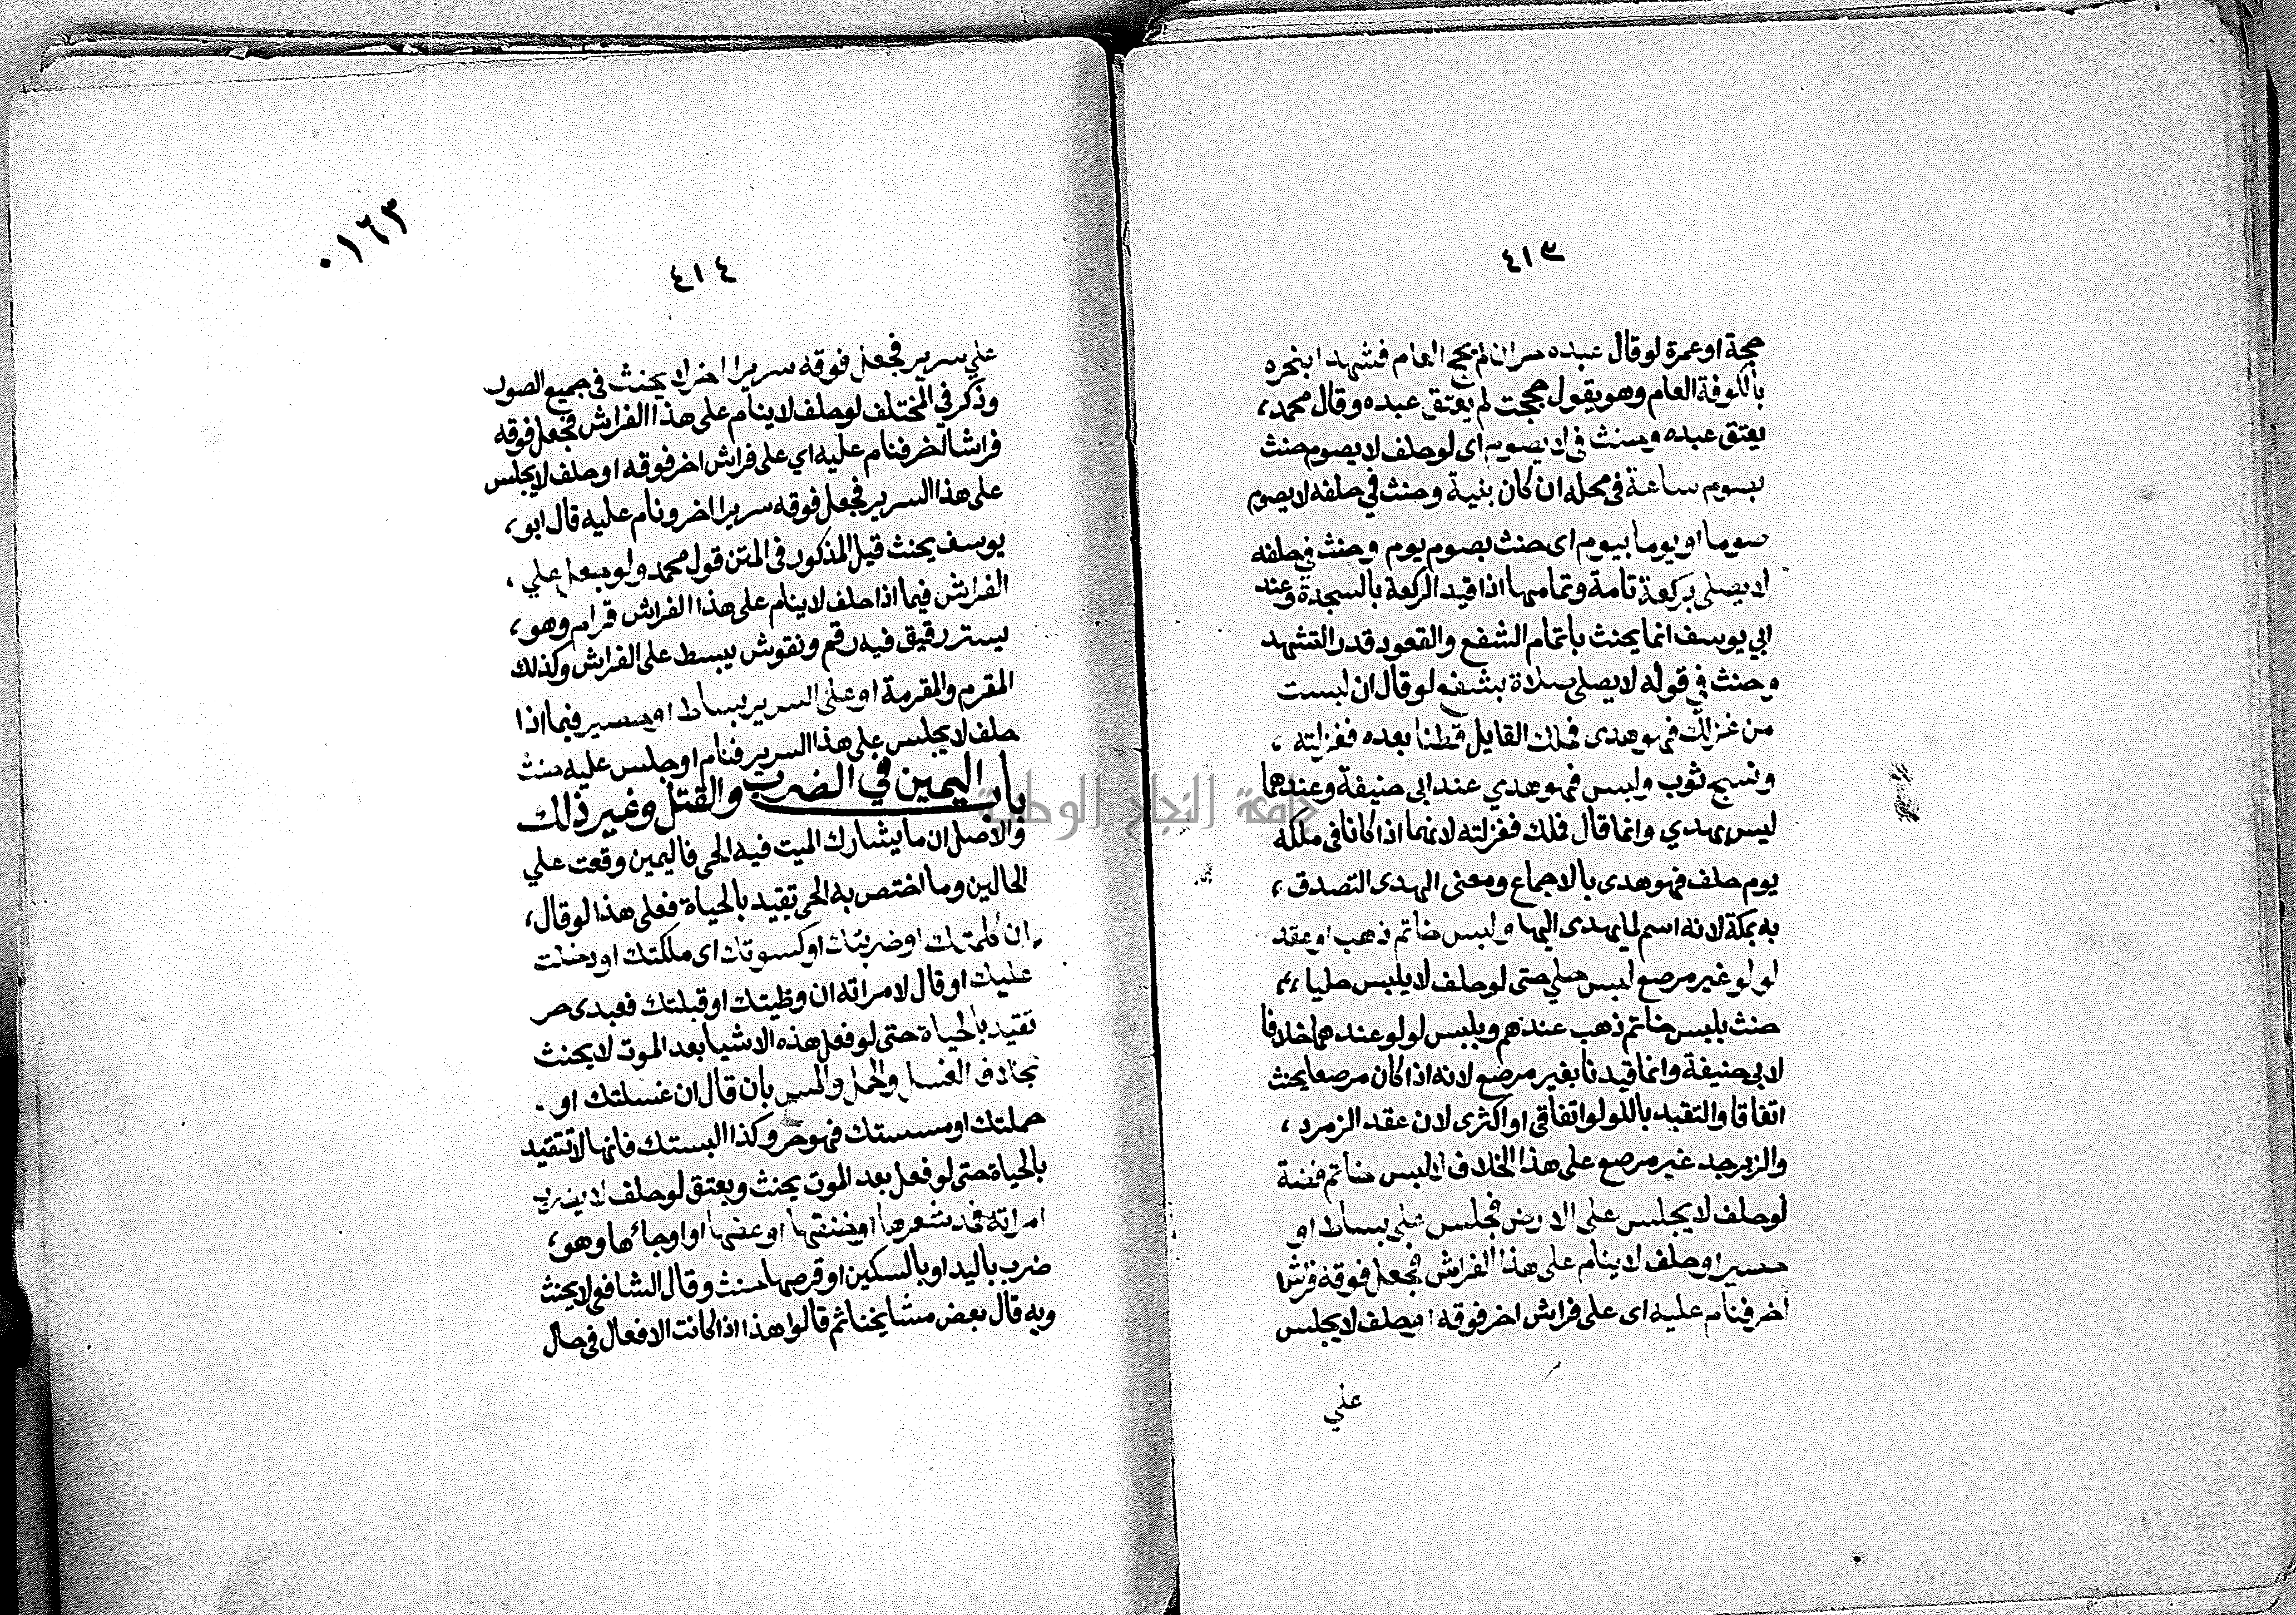 ٤١٣
حجة او عمرة لو قال عبده حر ان لم يحج العام فشهدا بنحره
بالكوفة العام وهو يقول حججت لم يعتق عبده وقال محمد،
يعتق عبده وحنث في لا يصوم اى لو حلف لا يصوم حنث
بصوم ساعة في محله ان كان بنية وحنث في حلفه لا يصوم
صوما او يوما بيوم اى حنث بصوم يوم وحنث في حلفه
لا يصلى بركعة تامة وتمامها اذا قيد الركعة بالسجدة وعند
ابي يوسف انما يحنث باتمام الشفع والقعود قدر التشهد
وحنث في قوله لا يصلى صلاة بشفع لو قال ان لبست
من غزلك فهو هدى فملك القايل قطنا بعده فغزلته ،
ونسج ثوب ولبس فهو هدي عند ابى حنيفة وعندهما
ليس بهدي وانما قال فملك فغزلته لانهما اذا كانا فى ملكه
يوم حلف فهو هدى بالاجماع ومعنى الهدى التصدق ،
به بمكة لانه اسم لما يهدى اليها ولبس خاتم ذهب او عقد
لولو غير مرصع لبس حلي حتى لو حلف لا يلبس حليا ،،
حنث بلبس خاتم ذهب عندهم وبلبس لولو عندهما خلافا
لابي حنيفة وانما قيدنا بغير مرصع لانه اذا كان مرصعا يحنث
اتفاقا والتقييد باللولو اتفاقي او اكثرى لان عقد الزمرد ،
والزبرجد غير مرصع على هذا الخلاف لا لبس خاتم فضة
لو حلف لا يجلس على الارض فجلس على بساط او
حصير او حلف لا ينام على هذا الفراش فجعل فوقه فراشا
اخر فنام عليه اى على فراش اخر فوقه او حلف لا يجلس
علي
٠١٦٣
٤١٤
علي سرير فجعل فوقه سريرا اخر لا يحنث في جميع الصور
وذكر في المختلف لو حلف لا ينام على هذا الفراش فجعل فوقه
فراشا اخر فنام عليه اي على فراش اخر فوقه او حلف لا يجلس
على هذا السرير فجعل فوقه سريرا اخر ونام عليه قال ابو،
يوسف يحنث قيل المذكور في المتن قول محمد ولو جعل علي ،
الفراش فيما اذا حلف لا ينام على هذا الفراش قرام وهو ،
ستر رقيق فيه رقم ونقوش يبسط على الفراش وكذلك
المقرم والمقرمة او على السرير بساط او حصير فيما اذا
حلف لا يجلس على هذا السرير فنام او جلس عليه حنث
باب اليمين في الضرب والقتل وغير ذلك
والاصل ان ما يشارك الميت فيه الحى فاليمين وقعت علي
الحالين وما اختص به الحى تقيد بالحياة فعلى هذا لو قال ،
ان كلمتك او ضربتك او كسوتك اى ملكتك او دخلت
عليك او قال لامراته ان وطيتك او قبلتك فعبدى حر
تقيد بالحياة حتى لو فعل هذه الاشيا بعد الموت لا يحنث
بخلاف الغسل والحمل والمس بان قال ان غسلتك او
حملتك او مسستك فهو حر وكذا البستك فانها لا تتقيد
بالحياة حتى لو فعل بعد الموت يحنث ويعتق لو حلف لا يضرب
امراته فمد شعرها او خنقها او عضها او اوجائها وهو ،
ضرب باليد او بالسكين او قرصها حنث وقال الشافعى لا يحنث
وبه قال بعض مشايخنا ثم قالوا هذا اذا كانت الافعال في حال
جامعة النجاح الوطنية